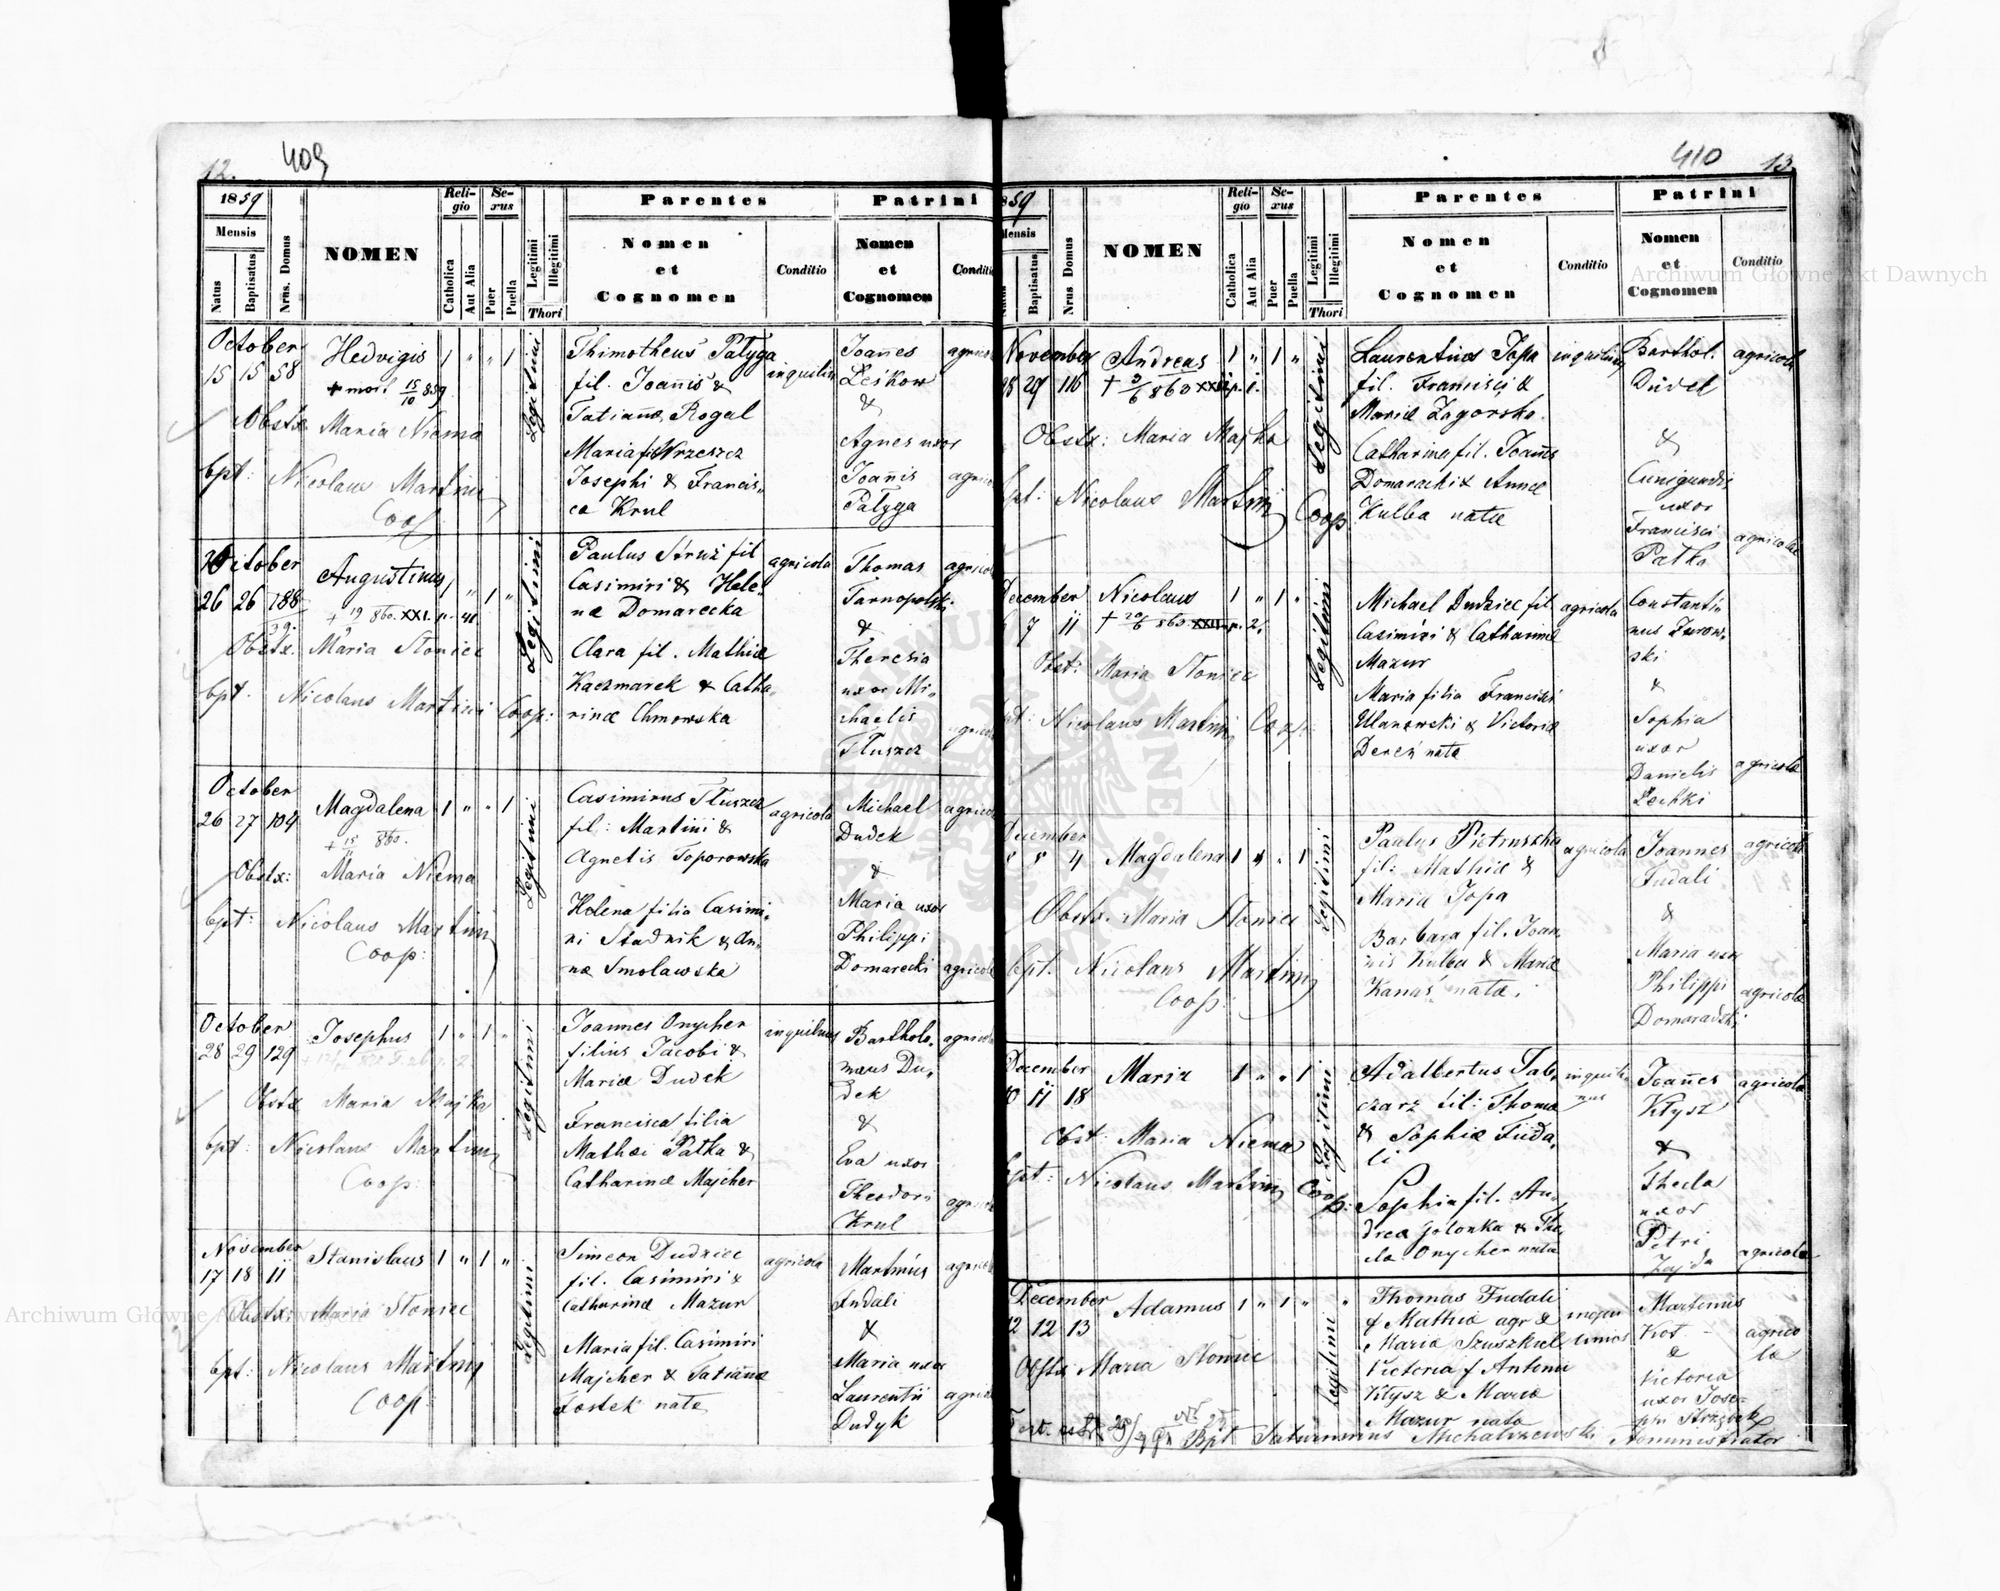 12.
409
1859
Mensis
Natus
Baptisatus
Nrus. Domus
NOMEN
Reli-
gio
Catholica
Aut Alia
Se-
xus
Puer
Puella
Legitimi
Illegitimi
Thori
Parentes
Nomen
et
Cognomen
Conditio
Patrini
Nomen
et
Cognomen
Conditio
October
15 15 58
Hedvigis 1 " " 1
Obstx Maria Niema
bpt: Nicolaus Martini
Coop
Legitimi
Thimotheus Pałyga
fil. Joanis &
Tatianæ Rogal
Maria fil Wrzeszcz
Josephi & Francis„
cæ Krul
inquilin
Joanes
Leśkow
&
Agnes uxor
Joanis
Pałyga
October
26 26 188
Augustinus 1 " 1 "
Obstx. Maria Stoniec
bpt. Nicolaus Martini Coop:
Legitimi
Paulus Struź fil
Casimiri & Hele„
næ Domarecka
Clara fil. Mathiæ
Kaczmarek & Catha„
rinæ Chmowska
agricola
Thomas
Tarnopolski
&
Theresia
uxor Mi„
chaelis
Tłuszcz
October
26 27 104
Magdalena 1 " " 1
Obstx: Maria Niema
bpt: Nicolaus Martini
Coop:
Legitimi
Casimirus Tłuszcz
fil: Martini &
Agnetis Toporowska
Helena filia Casimi„
ri Stadnik & An„
næ Smolawska
agricola
Michael
Dudek
&
Maria uxor
Philippi
Domarecki
October
28 29 129
Josephus 1 " 1 "
Obstx Maria Majka
bpt: Nicolaus Martini
Coop:
Legitimi
Joannes Onycher
filius Jacobi &
Mariæ Dudek
Francisca filia
Mathæi Pałka &
Catharinæ Majcher
inquilinus
Bartholo„
mæus Du„
dek
&
Eva uxor
Theodori
Krul
November
17 18 11
Stanislaus 1 " 1 "
Obstx: Maria Stoniec
bpt: Nicolaus Martini
Coop:
Legitimi
Simeon Dudziec
fil. Casimiri &
Catharinæ Mazur
Maria fil. Casimiri
Majcher & Tatiannæ
Łostek natæ
agricola
Martinus
Fudali
&
Maria uxor
Laurentii
Dudyk
410
13.
59
Mensis
Natus
Baptisatus
Nrus. Domus
NOMEN
Reli-
gio
Catholica
Aut Alia
Se-
xus
Puer
Puella
Legitimi
Illegitimi
Thori
Parentes
Nomen
et
Cognomen
Conditio
Patrini
Nomen
et
Cognomen
Conditio
November
28 29 116
Andreas 1 " 1 "
Obstx: Maria Majka
bpt: Nicolaus Martini Coop.
Legitimi
Laurentius Topa
fil. Francisci &
Mariæ Zagorska.
Catharina fil. Joanis
Domaracki & Annæ
Kulba natæ
inquilinus
Barthol.
Dudek
&
Cunigundis
uxor
Francisci
Pałka
agricola
agricolæ
December
7 11
Nicolaus 1 " 1 "
Obst: Maria Stoniec
bpt: Nicolaus Martini Coop:
Legitimi
Michael Dudziec fil.
Casimiri & Catharinæ
Mazur
Maria filia Francisci
Ulanowski & Victoriæ
Dereń nata
agricola
Constanti
nus Zurow„
ski
&
Sophia
uxor
Danielis
Lechki
agricolæ
December
8 8 4
Magdalena 1 " " 1
Obstx. Maria Stoniec
bpt. Nicolaus Martini
Coop:
Legitimi
Paulus Pietruszka
fil: Mathiæ &
Mariæ Topa
Barbara fil. Joan„
nis Kulba & Mariæ
Kanaś nata.
agricola
Joannes
Fudali
&
Maria uxor
Philippi
Domaradzki
agricola
agricolæ
December
10 11 18
Maria 1 " " 1
Obst: Maria Niema
bpt: Nicolaus Martini Coop:
Legitimi
Adalbertus Tab„
czarz fil: Thomæ
& Sophiæ Fuda„
li
Sophia fil. An„
dreæ Golonka & The„
clæ Onycher nata
inquili„
nus
Joanes
Kłysz
&
Thecla
uxor
Petri
Zajda
agricola
agricolæ
December
12 12 13
Adamus 1 " 1 " "
Obstx Maria Stoniec
Legitimi
Thomas Fudali
f Mathiæ agr &
Mariæ Szuszkiel
Victoria f Antoni
Kłysz & Mariæ
Mazur nata
Martinus
Kot
&
Victoria
uxor Jose„
phi Strzępek
agrico
la
Bpt Saturninus Michalczewski Administrator
Archiwum Główne Akt Dawnych
Archiwum Główne Akt Dawnych